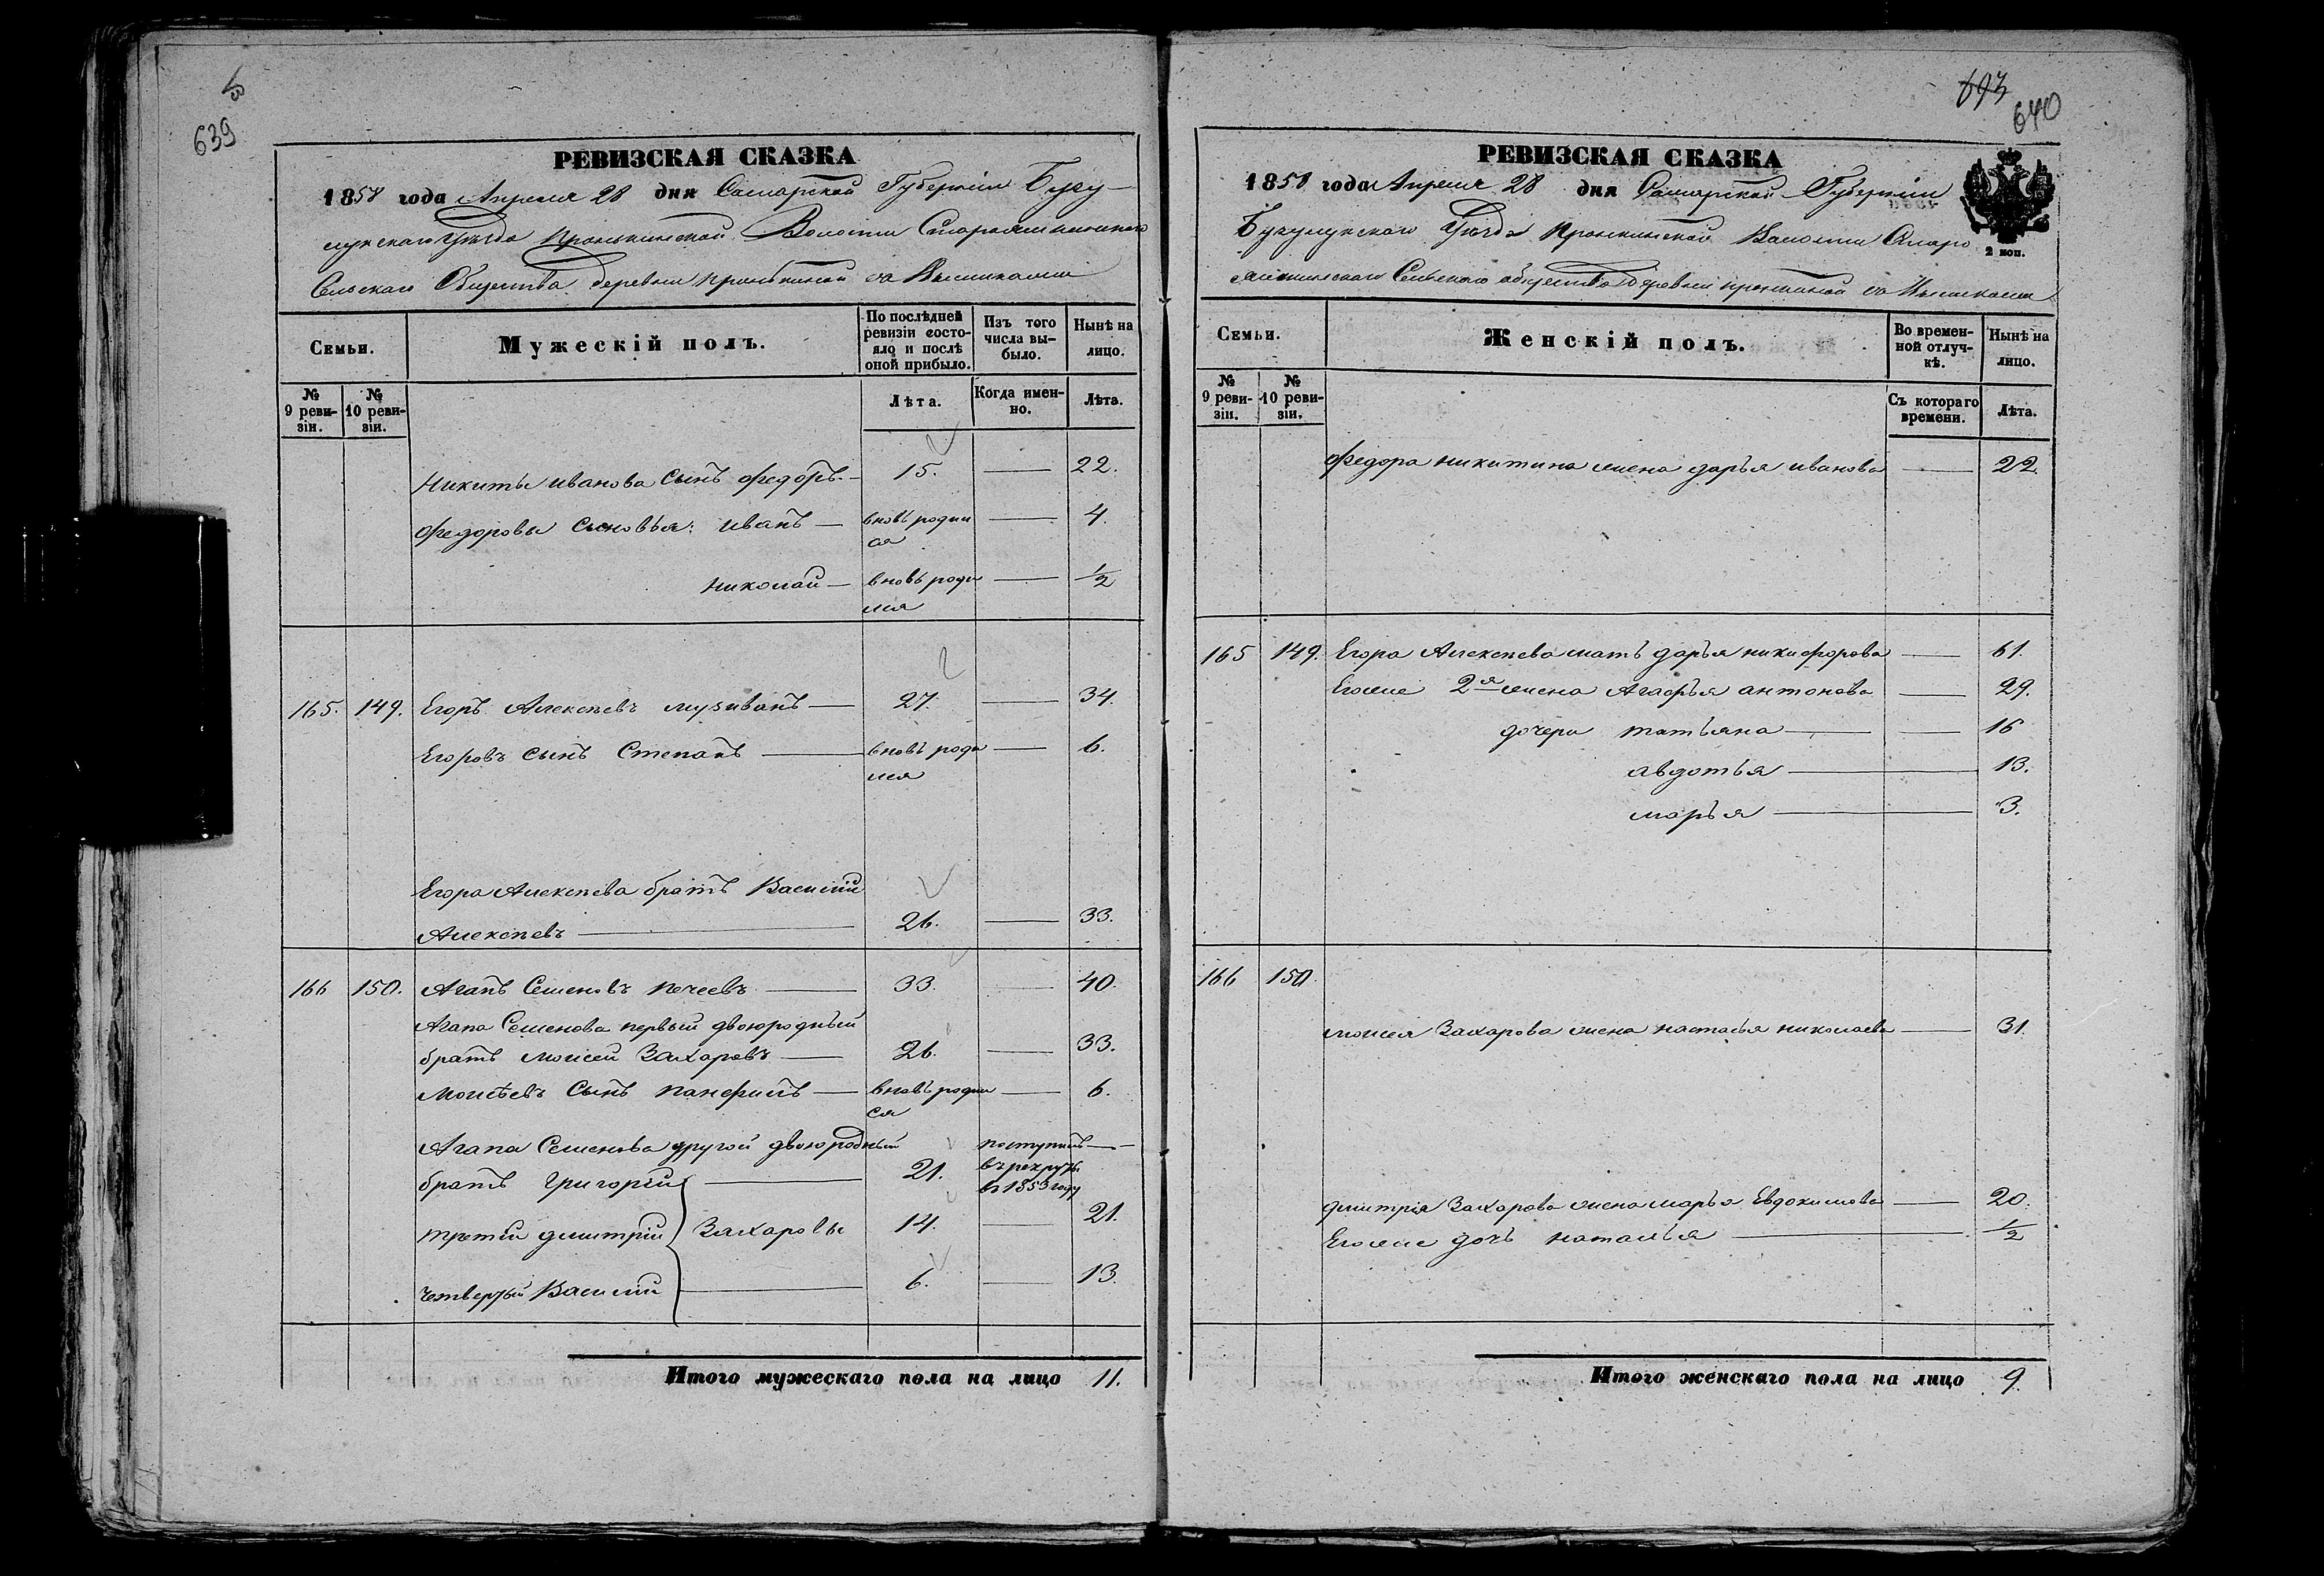 639
РЕВИЗСКАЯ СКАЗКА
1858 года Апреля 28 дня Самарской Губерніи Бузу-
лукскаго Уѣзда Пронькинской Волости
Сельскаго Общества деревни Пронькиной
Семьи.
Мужескій полъ.
По послѣдней ревизіи состо-
яло и послѣ
оной прибыло.
Изъ того
числа вы-
было.
Нынѣ на
лицо.
№
9 реви-
зіи.
№
10 реви-
зіи.
Лѣта.
Когда имен-
но.
Лѣта.
Никиты Иванова сынъ Федоръ 15. 22.
Федоровы сыновья: Иванъ вновь родил 4.
ся
Николай вновь роди ½
лся
165. 149. Егоръ Алексѣевъ Музыванъ 27. 34.
Егоровъ сынъ Степанъ вновь роди 6.
лся
Егора Алексѣева братъ Василій
Алексѣевъ 26. 33.
166 150. Агапъ Семеновъ Печеевъ 33. 40.
Агапа Семенова первый двоюродный
братъ Моисей Захаровъ 26. 33.
Моисѣевъ сынъ Панфилъ вновь родил 6.
ся
Агапа Семенова другой двоюродный поступилъ
братъ Григорій 21. въ рекруты
въ 1853 году
третій Дмитрій Захаровы 14. 21.
четвертый Василій 6. 13.
Итого мужескаго пола на лицо 11.
693
640
РЕВИЗСКАЯ СКАЗКА
1858 года Апреля 28 дня Самарской Губерніи
Бузулукскаго Уѣзда Пронькинской Волости Старо
Сельскаго общества деревни Пронькиной
2 коп.
Семьи.
Женскій полъ.
Во времен-
ной отлуч-
кѣ.
Нынѣ на
лицо.
№
9 реви-
зіи.
№
10 реви-
зіи.
Съ котораго
времени.
Лѣта.
Федора Никитина жена Дарья Иванова 22.
165 149. Егора Алексѣева мать Дарья Никифорова 61.
Егоже 2я жена Агафья Антонова 29.
дочери Татьяна 16
Авдотья 13.
Марья 3.
166 150.
Моисея Захарова жена Настасья Николаева 31.
Дмитрія Захарова жена Марья Евдокимова 20.
Егоже дочь Наталья ½
Итого женскаго пола на лицо 9.